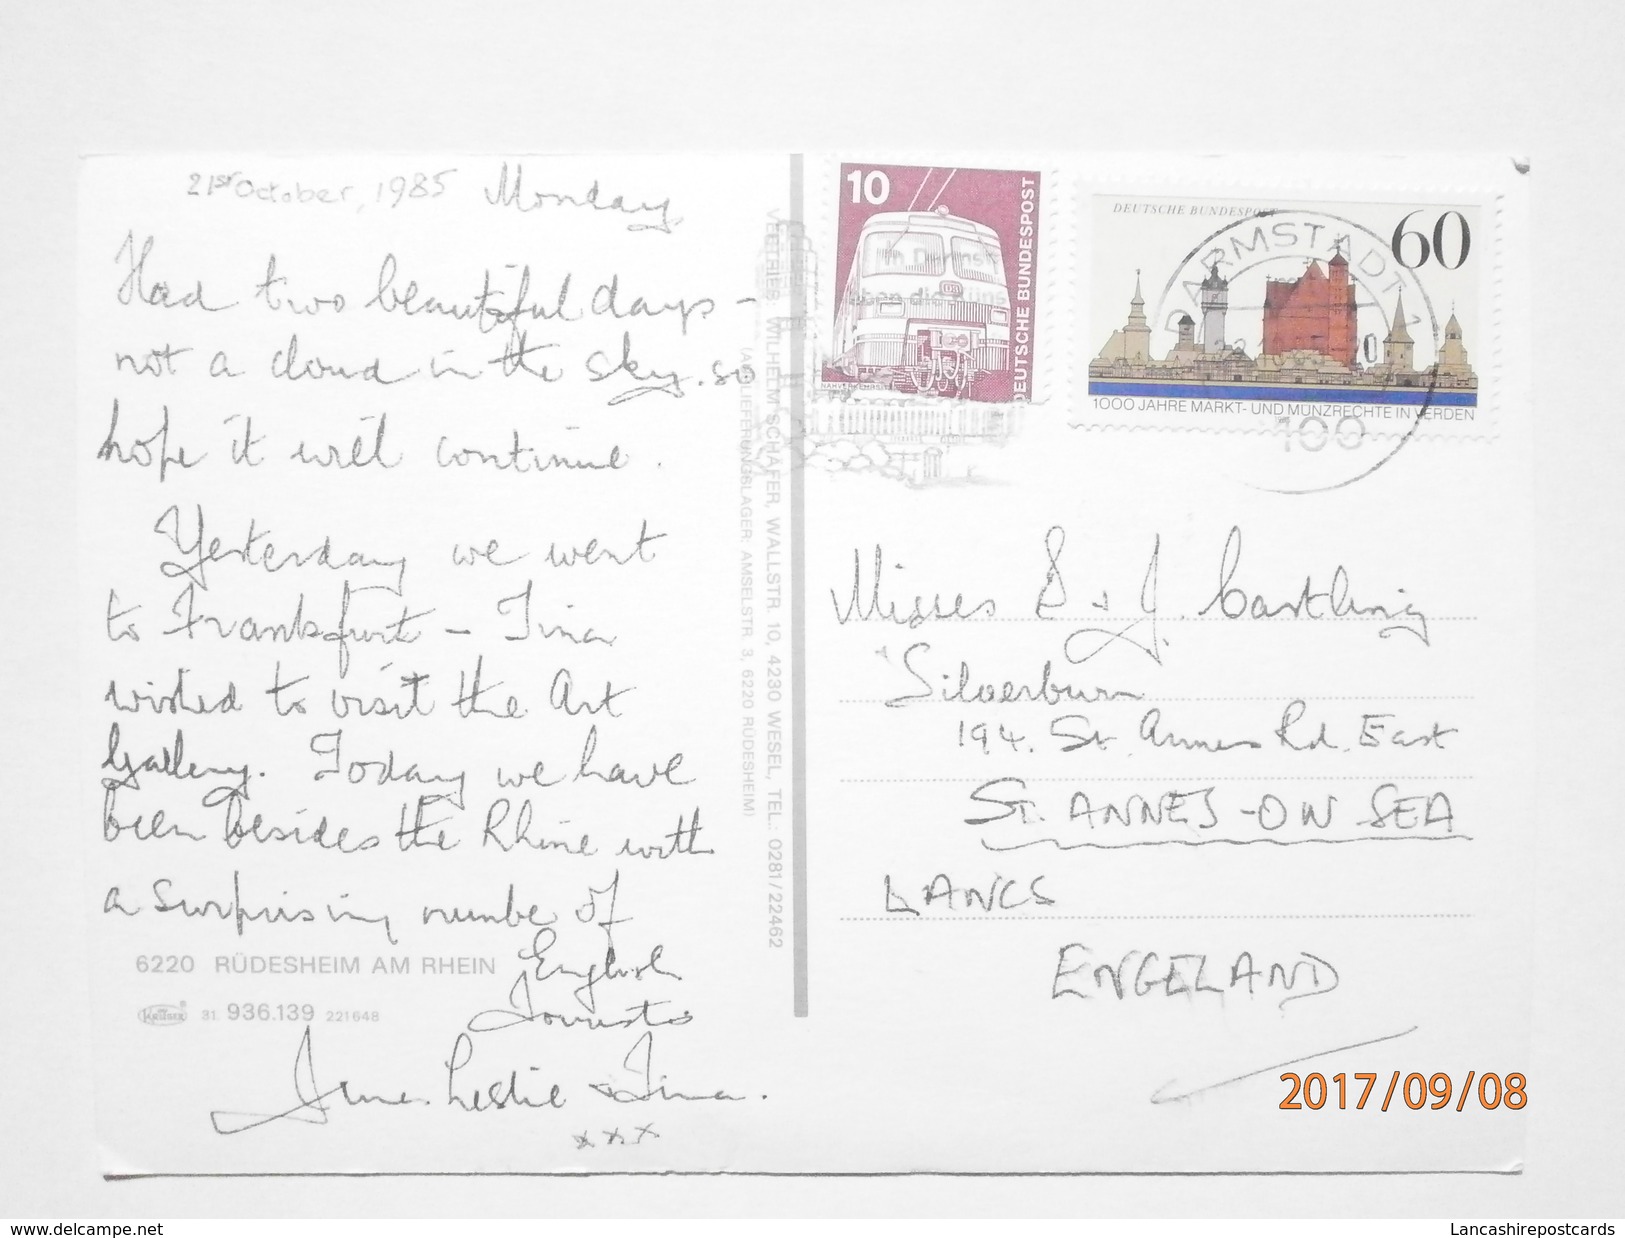 21st October, 1985 Monday
Had two beautiful days -
not a cloud in the sky. so
hope it will continue.
Yesterday we went
to Frankfurt - Tina
wished to visit the Art
Gallery. Today we have
been besides the Rhine with
a surprising number of
English
Tourists
Leslie & Tina.
xxx
6220 RÜDESHEIM AM RHEIN
31. 936.139 221648
VERTRIEB: WILHELM SCHÄFER, WALLSTR. 10, 4230 WESEL, TEL.: 0281/22462
(AUSLIEFERUNGSLAGER: AMSELSTR. 3, 6220 RÜDESHEIM)
10
DEUTSCHE BUNDESPOST
DEUTSCHE BUNDESPOST
60
1000 JAHRE MARKT- UND MÜNZRECHTE IN VERDEN
DARMSTADT 1
100
Misses & J. Cartling
Silverburn
194. St. Annes Rd. East
ST. ANNES-ON SEA
LANCS
ENGELAND
2017/09/08
www.delcampe.net
Lancashirepostcards